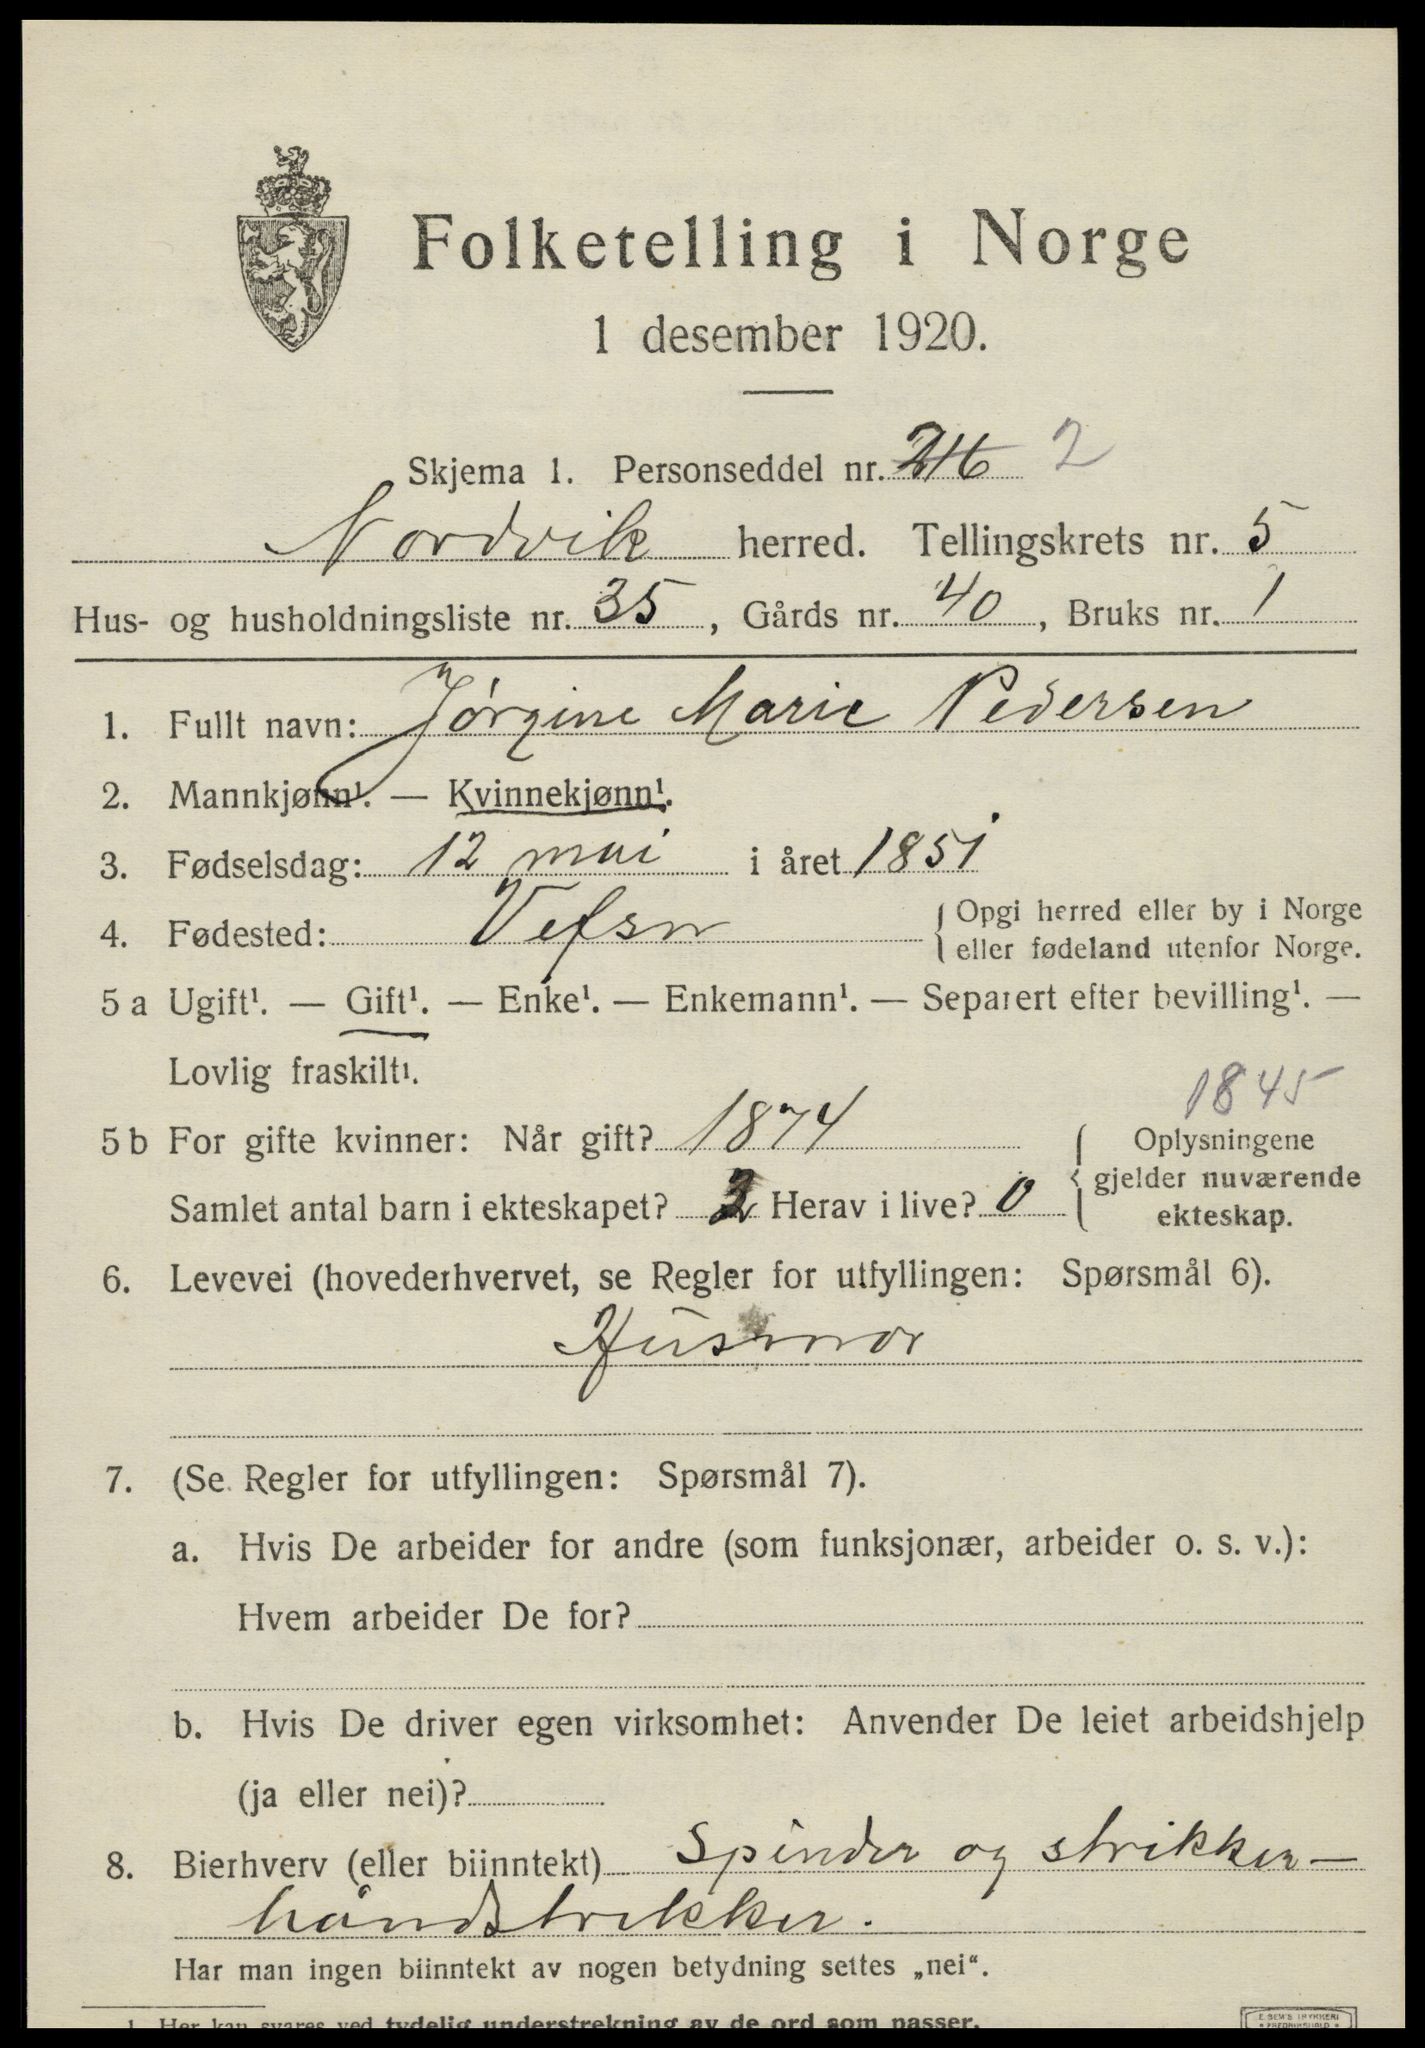 Folketelling i Norge
1 desember 1920.
Skjema 1. Personseddel nr. 246 2
Nordvik herred. Tellingskrets nr. 5
Hus- og husholdningsliste nr. 35, Gårds nr. 40, Bruks nr. 1
1. Fullt navn: Jørgine Marie Pedersen
2. Mannkjønn¹. — Kvinnekjønn¹.
3. Fødselsdag: 12 mai i året 1851
4. Fødested: Vefsn { Opgi herred eller by i Norge
eller fødeland utenfor Norge.
5 a Ugift¹. — Gift¹. — Enke¹. — Enkemann¹. — Separert efter bevilling¹. —
Lovlig fraskilt¹.
1845
5 b For gifte kvinner: Når gift? 1874 { Oplysningene
gjelder nuværende
Samlet antal barn i ekteskapet? 2 Herav i live? 0
ekteskap.
6. Levevei (hovederhvervet, se Regler for utfyllingen: Spørsmål 6).
Husmor
7. (Se Regler for utfyllingen: Spørsmål 7).
a. Hvis De arbeider for andre (som funksjonær, arbeider o. s. v.):
Hvem arbeider De for?
b. Hvis De driver egen virksomhet: Anvender De leiet arbeidshjelp
(ja eller nei)?
8. Bierhverv (eller biinntekt) Spinder og strikker —
håndstrikker.
Har man ingen biinntekt av nogen betydning settes „nei“.
1 Her kan svares ved tydelig understrekning av de ord som passer.
E. SEM'S TRYKKERI
* FREDRIKSHALD *